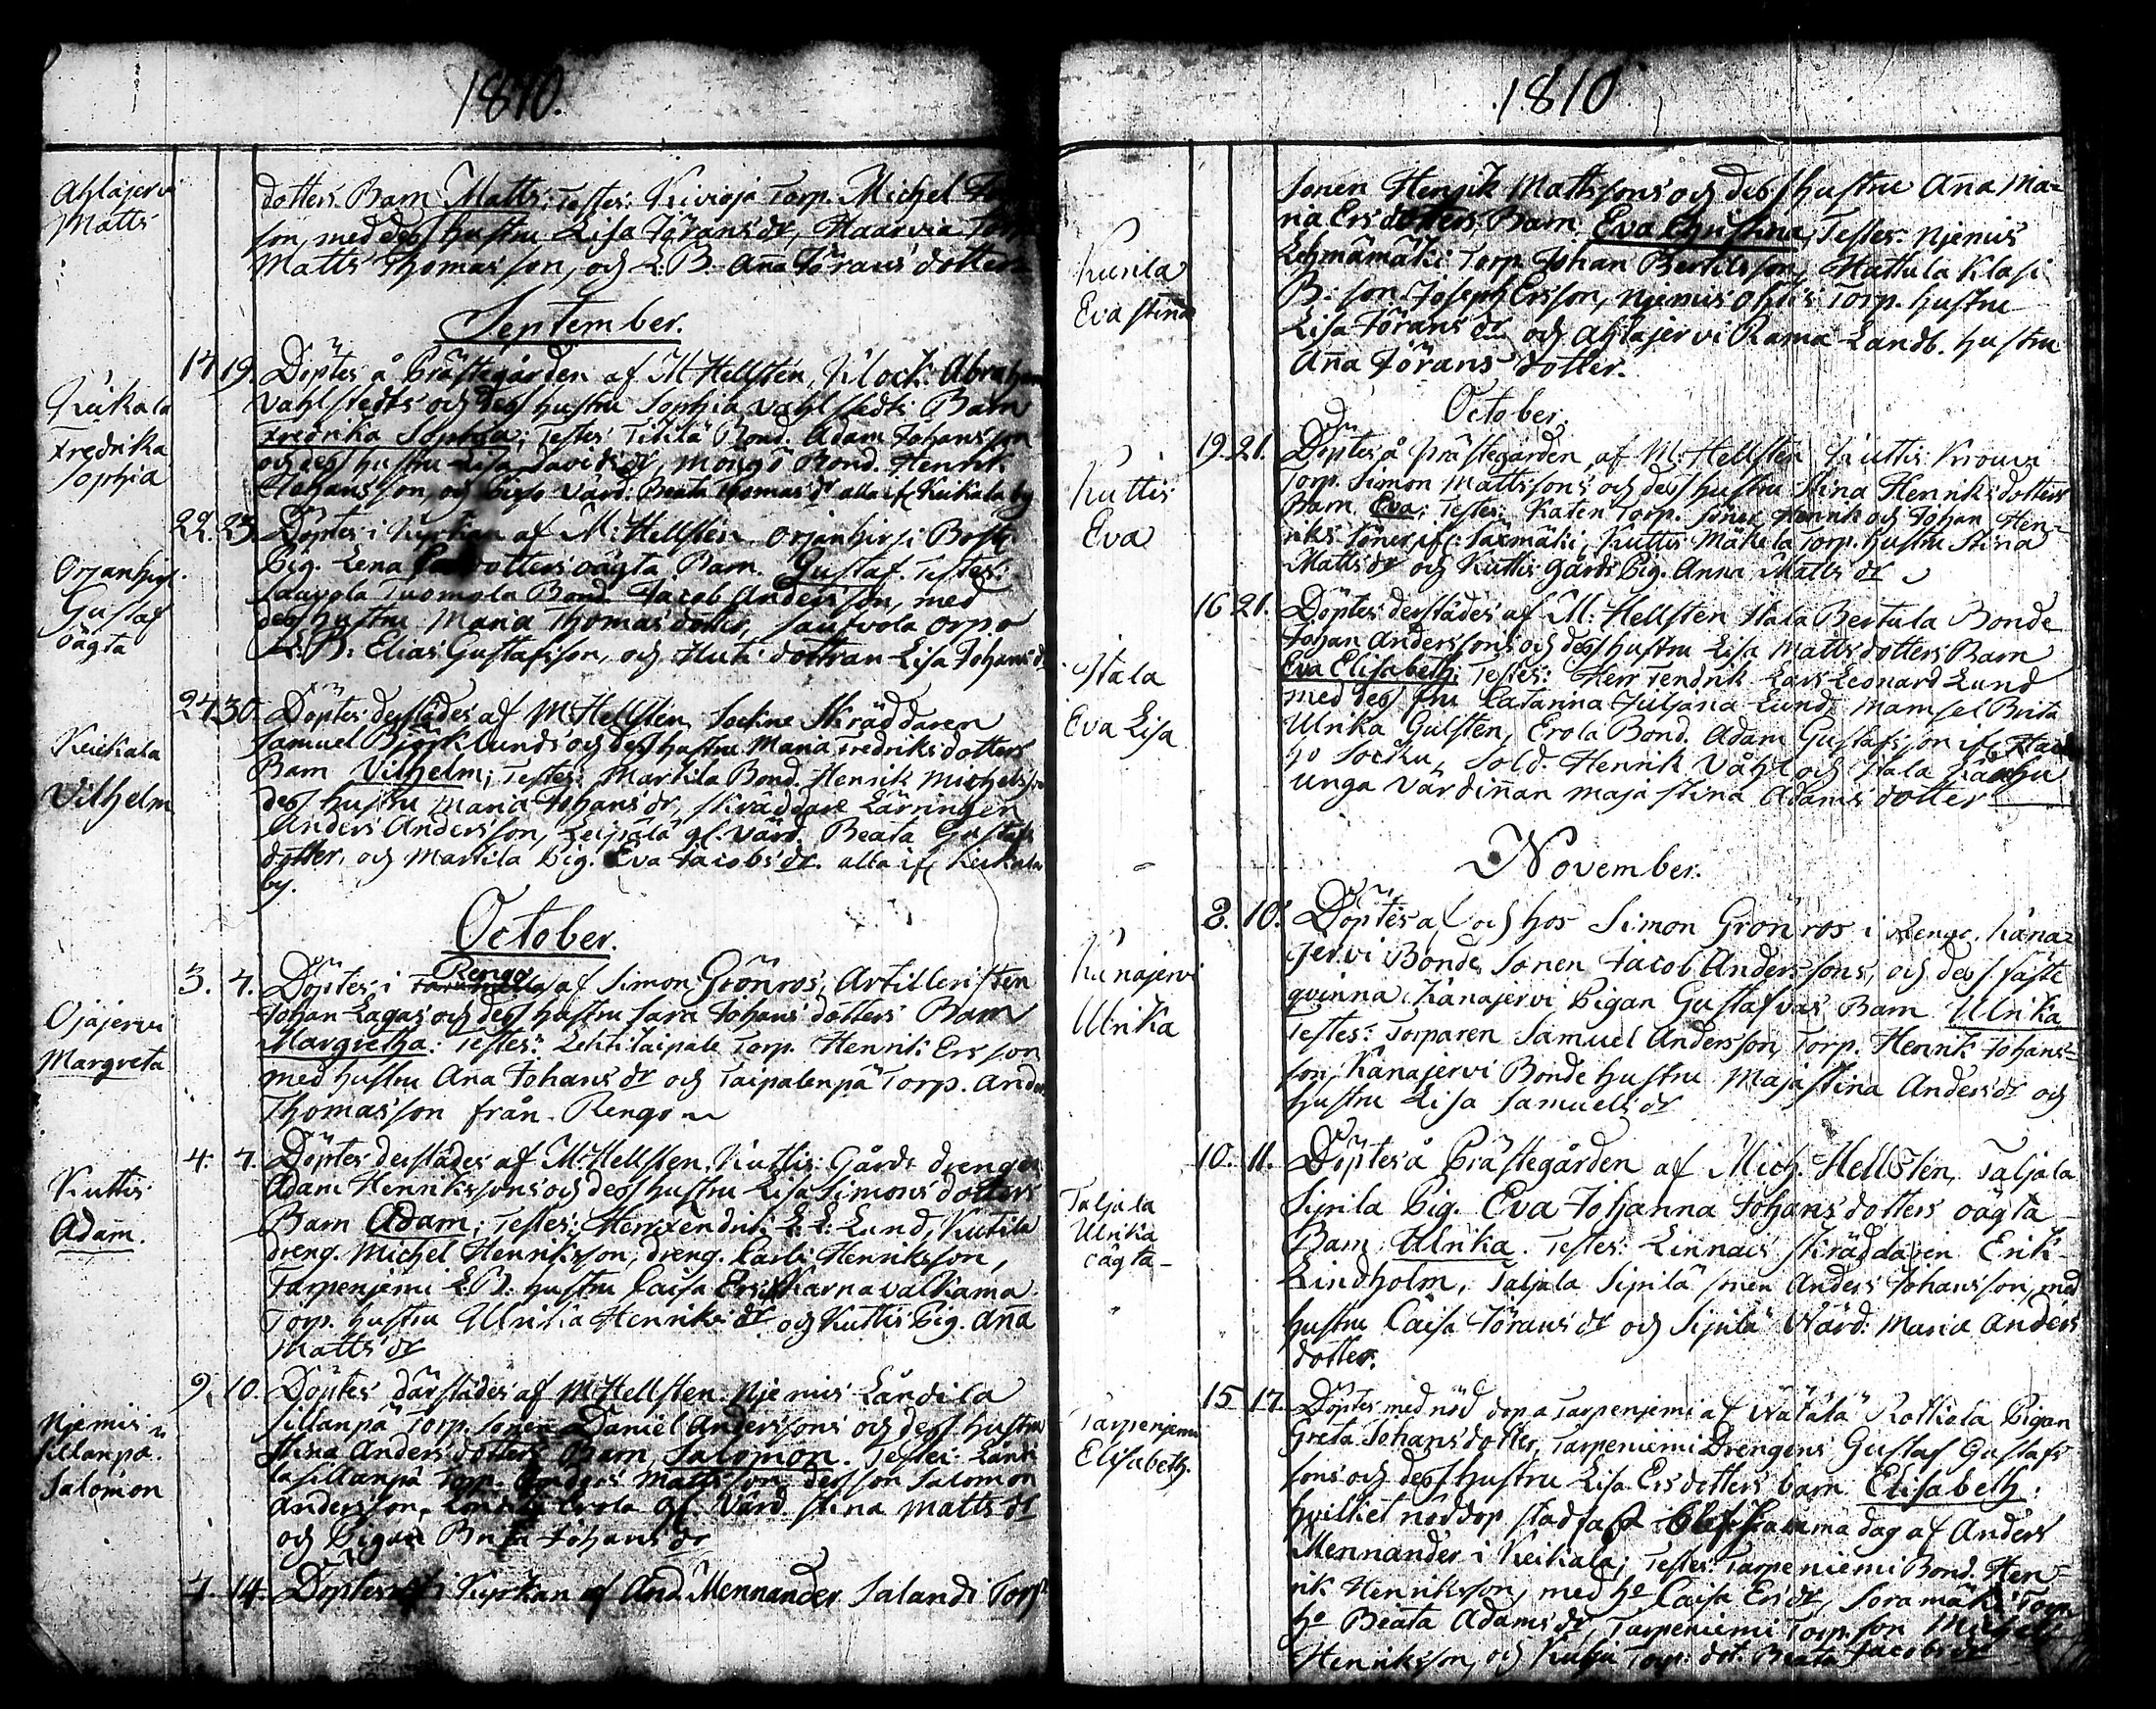 1810.
Ahlajervi
Matts
dotters Barn Matts; Testes: Kivioja Torp. Michel
son, med dess hustru Lisa Jörans dr, Haarvia Torp
Matts Thomas son, och L.B. Anna Jörans dotter
September.
Keikala
Fredrika
Sophia
14 19. Döptes å Prästegården af M Hellsten, Klock. Abraham
Vahlstedts och dess hustru Sophia Vahlstedts Barn
Fredrika Sophia; Testes Titilä Bond. Adam Johansson
och dess hustru Lisa Davids dr, Moisio Bond. Henrik
Johansson, och Värd. Beata Thomas dr alla ifr Keikala by
Orjanhirs.
Gustaf
oägta
22. 23. Döptes i Kyrkan af M: Hellsten Orjanhirsi Bost.
Pig. Lena dotters oägta Barn. Gustaf. Testes:
Sauvola Tuomola Bond. Jacob Andersson, med
dess hustru Maria Thomas dotter, Sautvola
L.B. Elias Gustafsson, och Huti dottran Lisa Johans dr
Keikala
Vilhelm
24 30. Döptes derstädes af M Hellsten, Sockne Skräddaren
Samuel Björklunds och dess hustru Maria Fredriks dotters
Barn Vilhelm; Testes: Martila Bond. Henrik Michelsson
dess hustru Maria Johans dr, Skräddare Lärningen
Anders Andersson, Leipälä gl. värd. Beata Gustafs
dotter, och Martila Pig. Eva Jacobs dr. alla ifr Keikala
by.
October.
Ojajervi
Margreta
3. 7. Döptes i Rengo af Simon Grönros, Artilleristen
Johan Lagas och dess hustru Sara Johans dotters Barn
Margretha: Testes: Lehtitaipale Torp. Henrik Ersson
med hustru Ana Johans dr och Taipalenpä Torp. And.
Thomasson från Rengo
Kuttis
Adam.
4. 7. Döptes derstädes af M: Hellsten, Kuttis Gårds drengen
Adam Henrikssons och dess hustru Lisa Simons dotters
Barn Adam; Testes: Herr Fendrik L. L: Lund, Kuttila
dreng. Michel Henriksson, dreng. Carl Henriksson,
Tarpenjemi L.B. hustru Caisa Ers Karnavalkama
Torp. hustru Ulrika Henriks dr och Kuttis Pig. Anna
Matts dr
Njemis
Sillanpä.
Salomon
9. 10. Döptes därstädes af M Hellsten Njemis Låndila
Sillanpä Torp. sonen Daniel Anderssons och dess hustru
Stina Anders dotters Barn, Salomon. Testes: Länti
la Sillanpä Torp. Anders Mattsson dess son Salomon
Andersson, Erola gl. Värd. Stina Matts dr
och Pigan Brita Johans dr
7. 14. Döptes i Kyrkan af And. Mennander Salandi Torp
1810
Kunila
Eva Stina
sonen Henrik Mattssons och dess hustru Ana Ma-
ria Ersdotters Barn: Eva Christina, Testes: Njemis
Lehmämäki Torp. Johan Bertilsson, Hattula Klasi
B. son Joseph Ersson, Njemis Torp. hustru
Lisa Jörans dr och Ahlajervi Rama Landb. hustru
Anna Jörans dotter.
October.
Kuttis
Eva
19. 21. Döptes å Prästegården, af M: Hellsten Kuttis Krouvi
Torp. Simon Mattssons och dess hustru Stina Henriks dotters
Barn Eva; Testes: Katen Torp. söner Henrik och Johan Hen-
riks söner, ifr: Saxmäki, Kuttis Makela Torp. hustru Stina
Matts dr och Kuttis Gårds Pig. Anna Matts dr
Itala
Eva Lisa
16 21. Döptes derstädes af M: Hellsten Itala Bertula Bonde
Johan Anderssons och dess hustru Lisa Mattsdotters Barn
Eva Elisabeth; Testes: Herr Fendrik Lars Leonard Lund
med dess fru Catarina Juliana Lund, Mamsel Brita
Ulrika Gulsten, Erola Bond. Adam Gustafsson ifr
Sockn, Sold. Henrik Våhl och Itala
unga värdinnan Maja Stina Adams dotter
November.
Kanajervi
Ulrika
8. 10. Döptes af och hos Simon Grönros i Rengo, Kana-
jervi Bonde Sonen Jacob Anderssons, och dess fäste
qvinna Kanajervi Pigan Gustafvas Barn Ulrika
Testes: Torparen Samuel Andersson, Torp. Henrik Johans-
son, Kanajervi Bonde hustru Maja Stina Anders dr och
hustru Lisa Samuels dr
Taljala
Ulrika
oägta
10. 11. Döptes å Prästegården af Mich. Hellsten, Taljala
Sipila Pig. Eva Johanna Johans dotters oägta
Barn, Ulrika. Testes: Linnais Skräddaren Erik
Lindholm, Taljala Sipilä sonen Anders Johansson, med
hustru Caisa Jörans dr och Sipilä Värd: Maria Anders
dotter.
Tarpenjemi
Elisabeth.
15 17. Döptes med nöd dop a Tarpenjemi af Wätälä Rottiala Pigan
Greta Johansdotter, Tarpeniemi Drengens Gustaf Gustafs
sons och dess hustru Lisa Ersdotters barn Elisabeth:
hvilket nöddop stadfast blef samma dag af Anders
Mennander i Keikala; Testes: Tarpeniemi Bond. Hen-
rik Henriksson, med ho Caisa Ers dr, Soramäki Torp.
ho Beata Adams dr, Tarpeniemi Torp. son Michel
Henriksson, och Kulju Torp. dot. Beata Jacobs dr